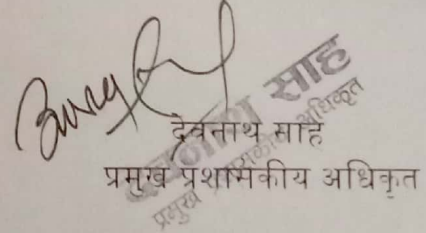 देवनाथ साह
प्रमुख प्रशासकीय अधिकृत
साह
प्रमुख
अधिकृत